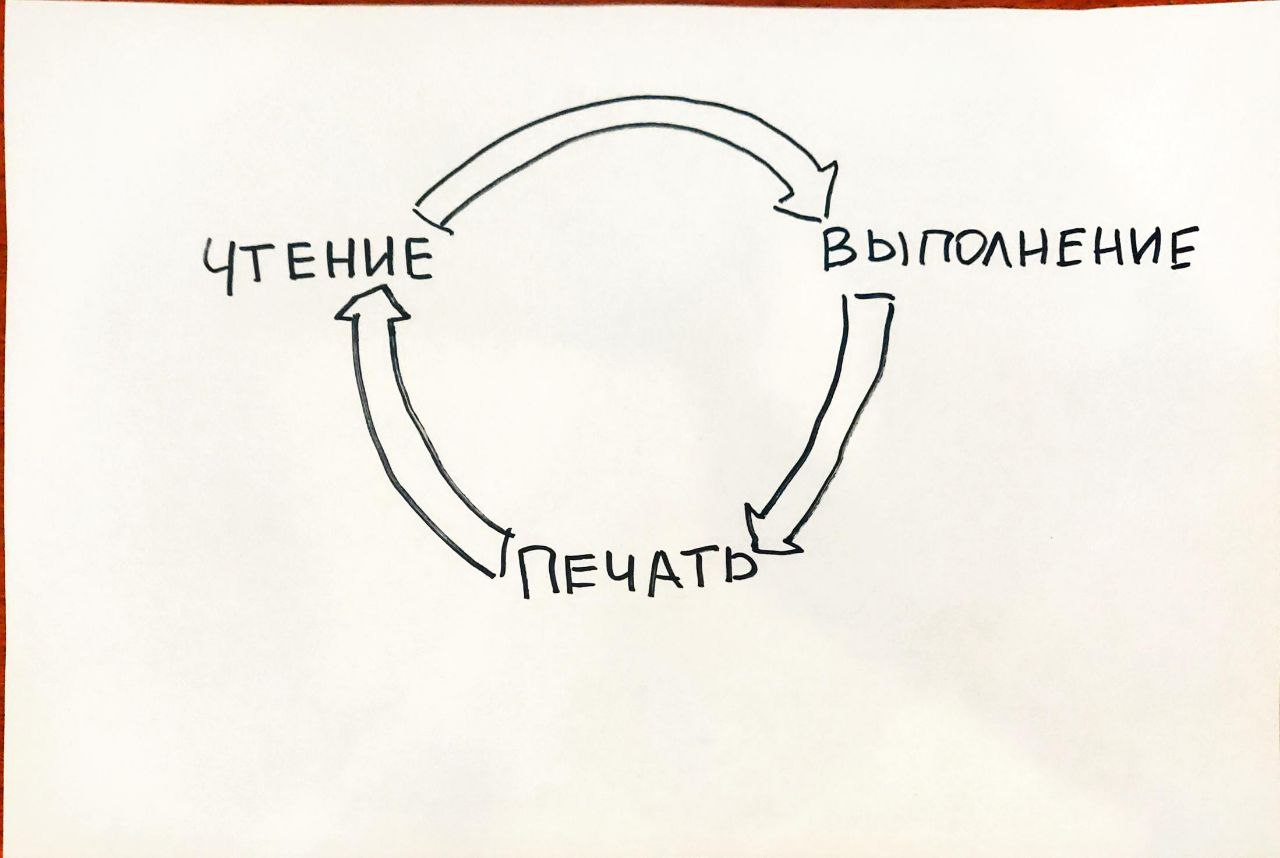 ЧТЕНИЕ
ВЫПОЛНЕНИЕ
ПЕЧАТЬ